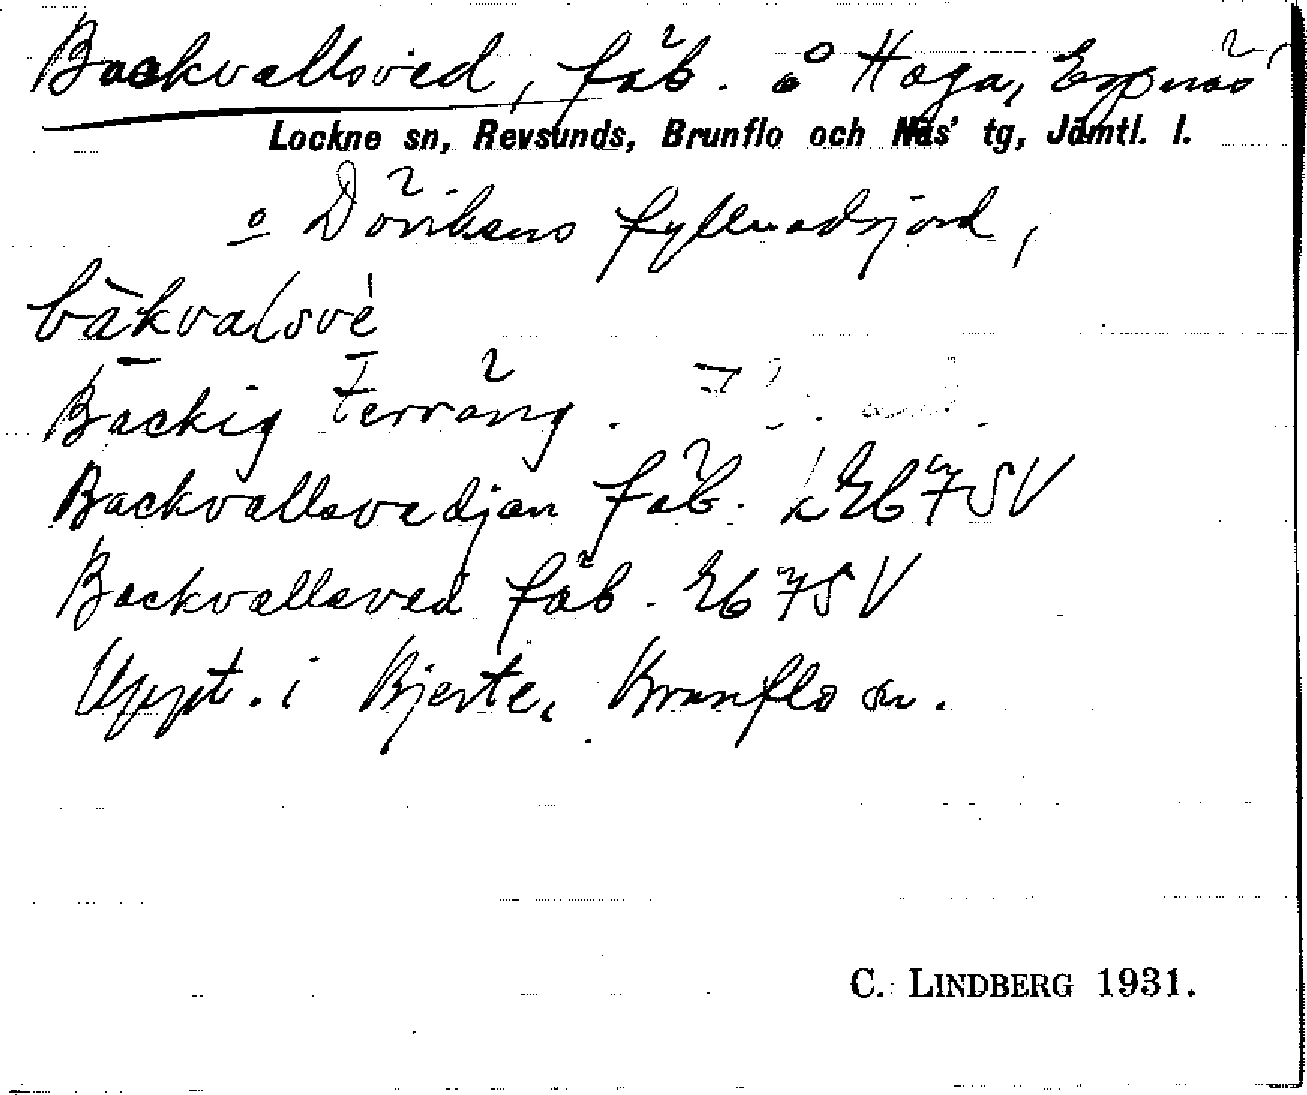 Backvallsved, fäb. å Haga, Espnäs
Lockne sn, Revsunds, Brunflo och Näs' tg, Jämtl. l.
o Dövikens fyllnadsjord,
bàkvalsvé
Backig terräng.
Backvallsvedjan fäb. Eb 7SV
Backvallsved fäb. Eb 7SV
Uppt. i Bjerte, Brunflo sn.
C. LINDBERG 1931.